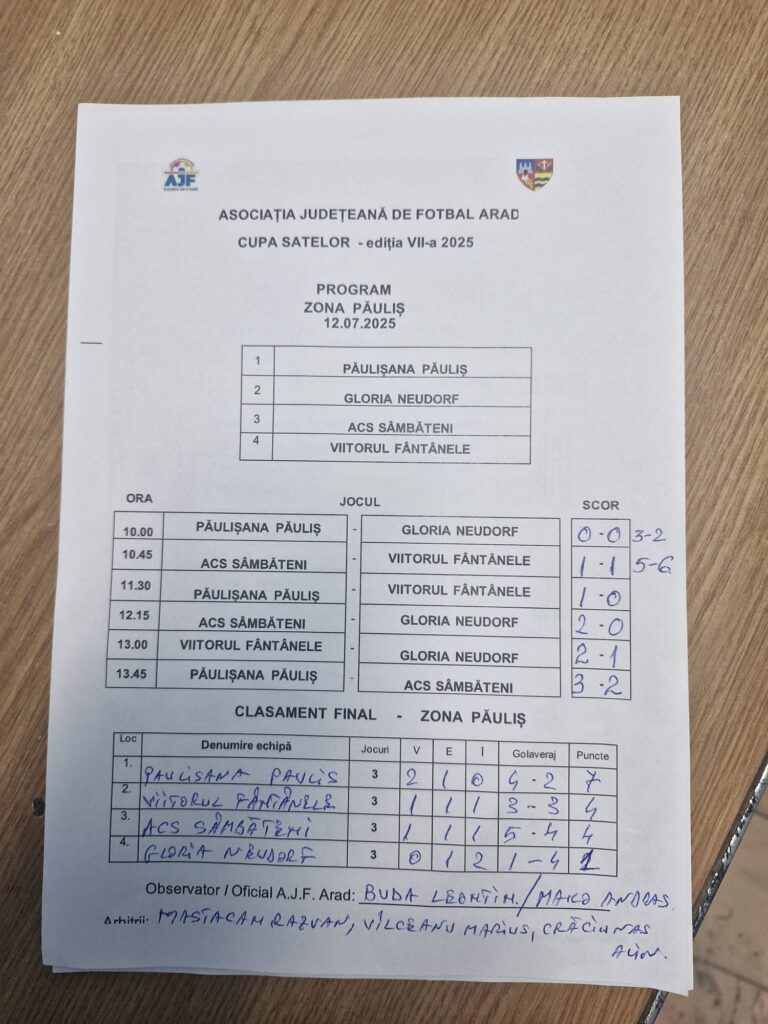 AJF
ASOCIAȚIA JUDEȚEANĂ DE FOTBAL ARAD
CUPA SATELOR - ediția VII-a 2025
PROGRAM
ZONA PĂULIȘ
12.07.2025
1 PĂULIȘANA PĂULIȘ
2 GLORIA NEUDORF
3 ACS SÂMBĂTENI
4 VIITORUL FÂNTÂNELE
ORA JOCUL SCOR
10.00 PĂULIȘANA PĂULIȘ - GLORIA NEUDORF 0-0 3-2
10.45 ACS SÂMBĂTENI - VIITORUL FÂNTÂNELE 1-1 5-6
11.30 PĂULIȘANA PĂULIȘ - VIITORUL FÂNTÂNELE 1-0
12.15 ACS SÂMBĂTENI - GLORIA NEUDORF 2-0
13.00 VIITORUL FÂNTÂNELE - GLORIA NEUDORF 2-1
13.45 PĂULIȘANA PĂULIȘ - ACS SÂMBĂTENI 3-2
CLASAMENT FINAL - ZONA PĂULIȘ
Loc Denumire echipă Jocuri V E Î Golaveraj Puncte
1. PAULISANA PAULIS 3 2 1 0 4-2 7
2. VIITORUL FÂNTÂNELE 3 1 1 1 3-3 4
3. ACS SÂMBĂTENI 3 1 1 1 5-4 4
4. GLORIA NEUDORF 3 0 1 2 1-4 1
Observator / Oficial A.J.F. Arad: BUDA LEONTIN./MAKO ANDRAS
Arbitrii: MASTACAN RAZVAN, VÎLCEANU MARIUS, CRĂCIUNAS
ALIN.